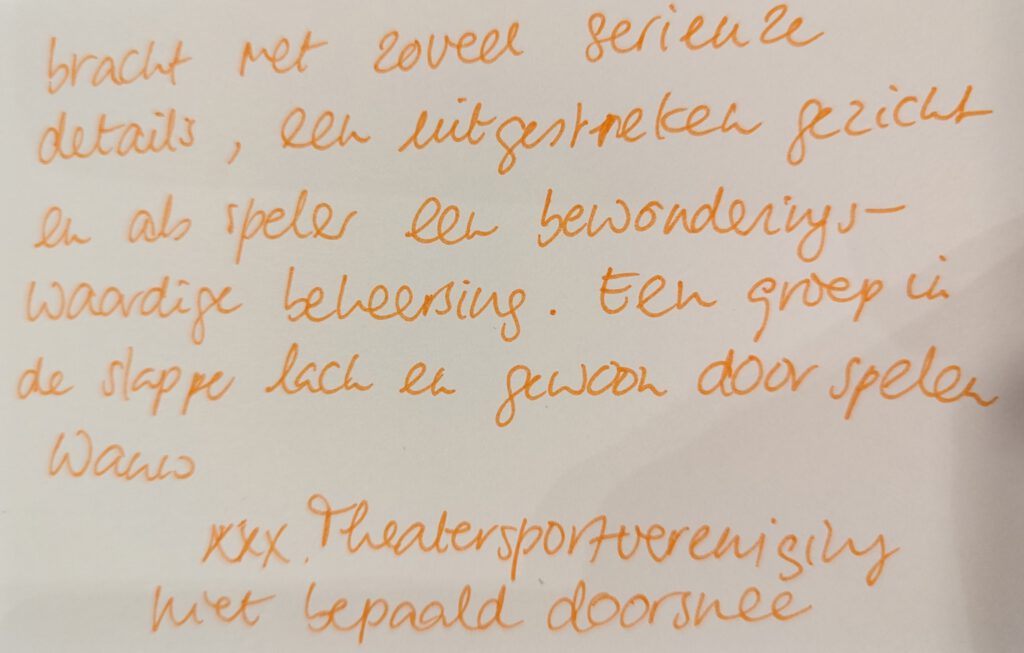 bracht met zoveel serieuze
details, een uitgestreken gezicht
en als speler een bewonderings-
waardige beheersing. Een groep in
de slappe lach en gewoon door spelen
Wauw
xxx. Theatersportvereniging
niet bepaald doorsnee